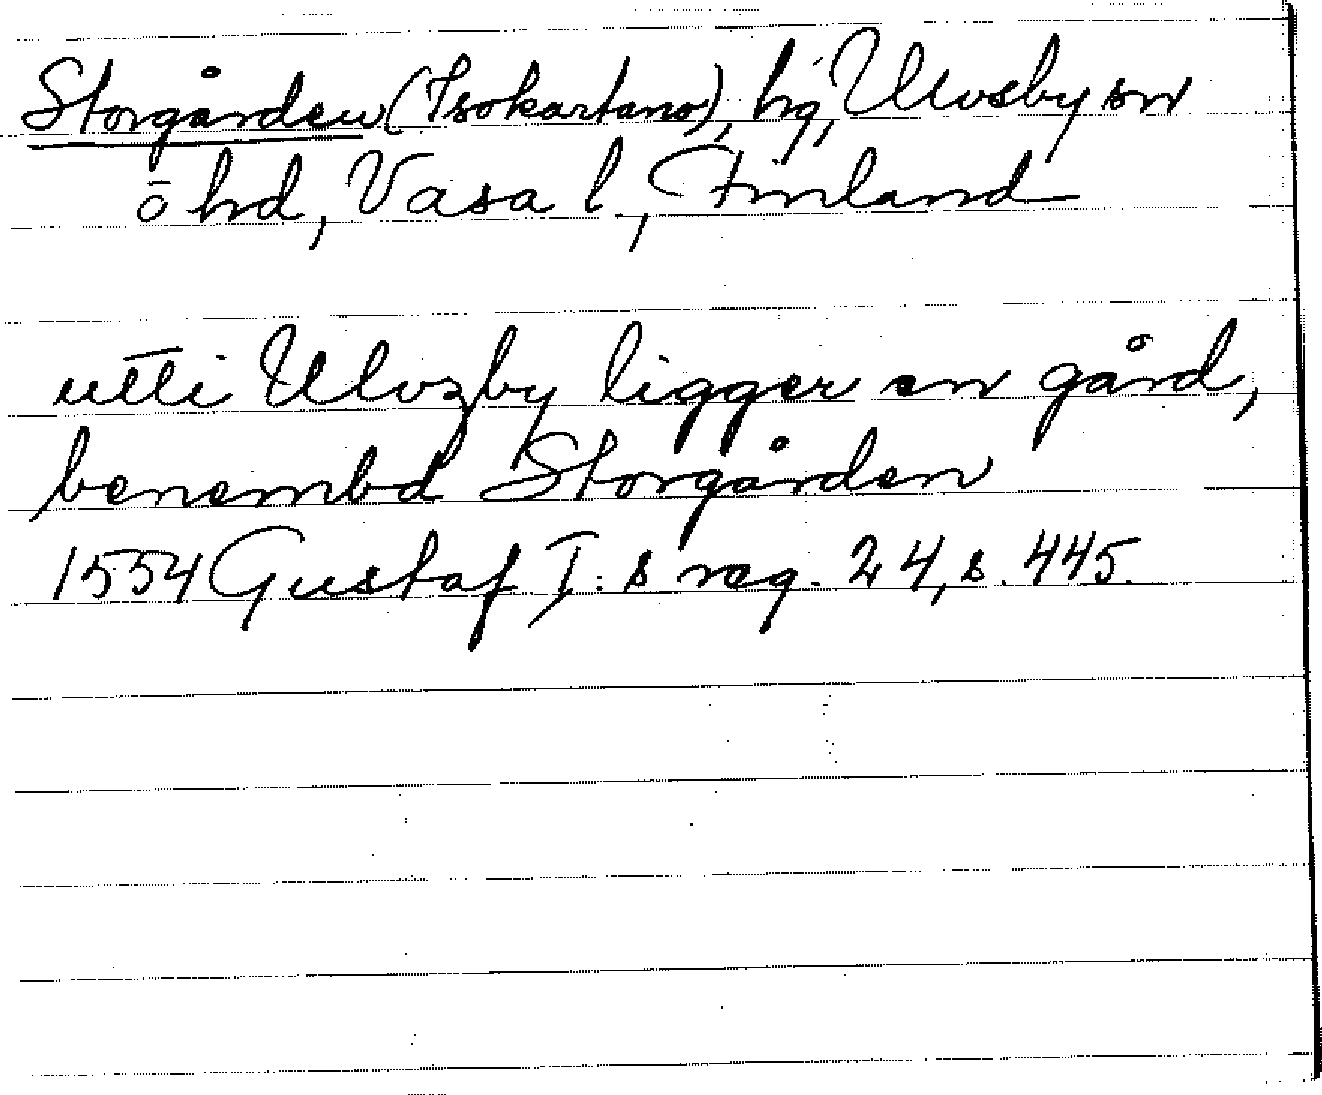 Storgården (Isokartano), hg, Ulvsby sn
ō hd, Vasa l, Finland
utti Ulvzby ligger en gård,
benembd Storgården
1554 Gustaf I:s reg. 24, s. 445.